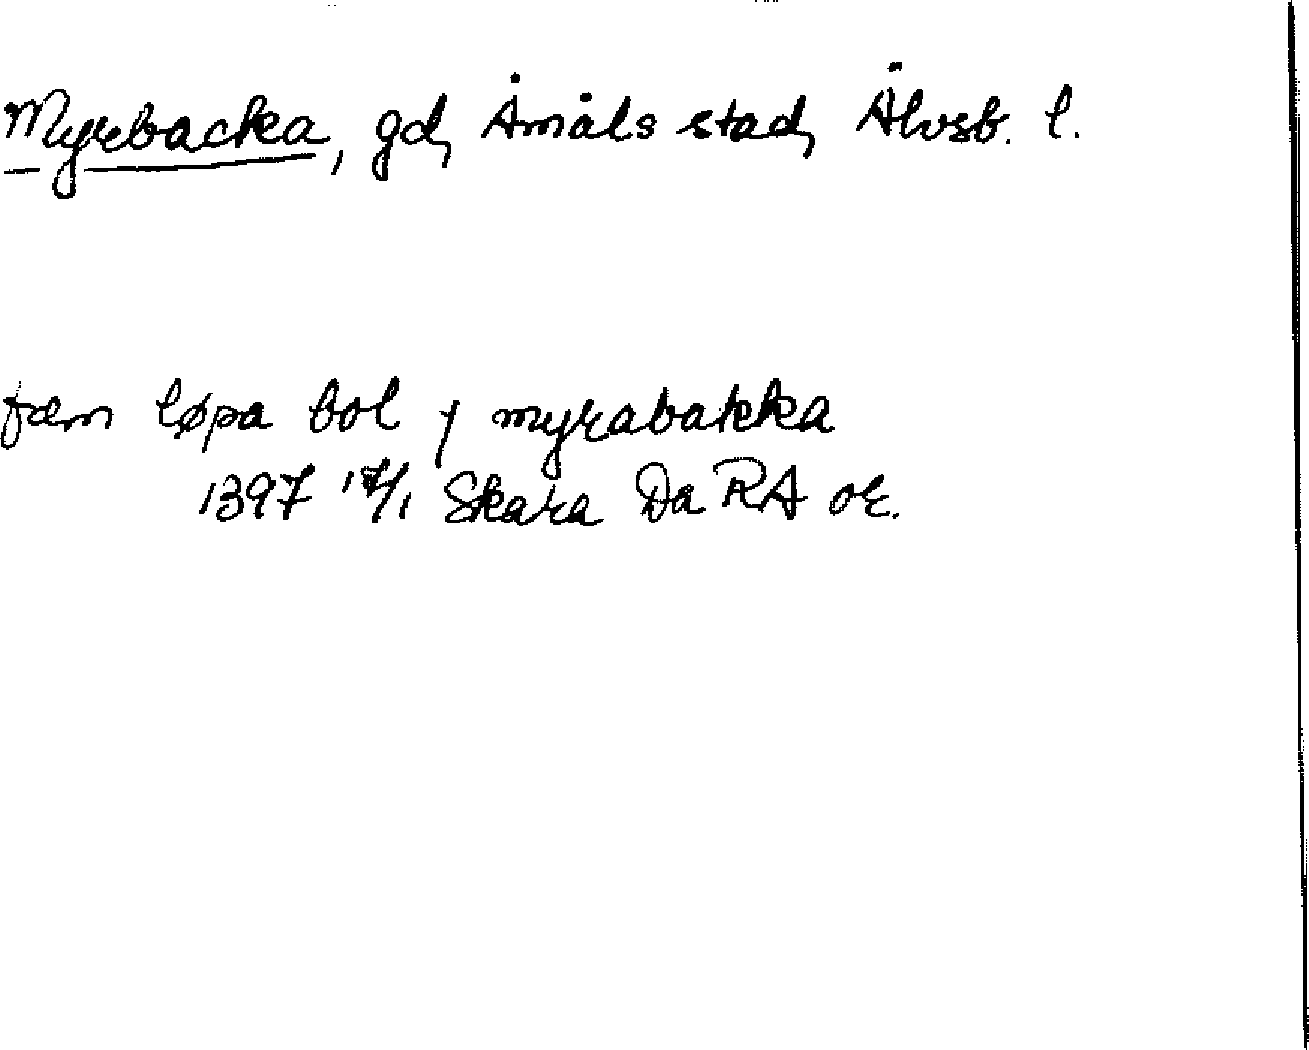 Myrebacka, gd, Åmåls stad, Älvsb. l.
fæm løpa bol j myrabakka
1397 17/1 Skara Da RA or.